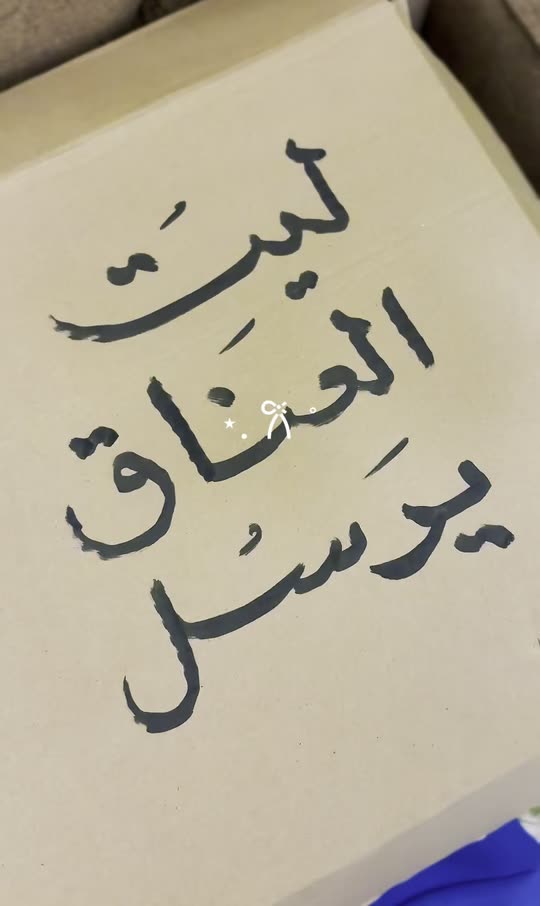 ليتَ
العنَاق
يرَسُل